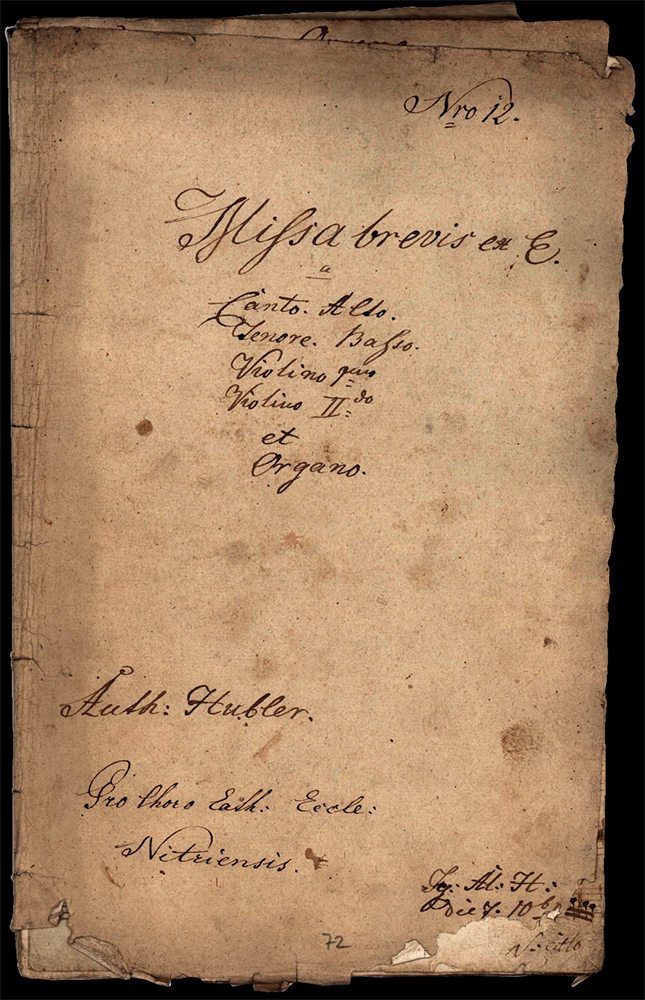 Nro 12.
Missa brevis ex E.
a
Canto. Alto.
Tenore. Basso.
Violino
Violino II:do
et
Organo.
Auth: Hubler.
Pro Choro Cath: Eccle:
Nitriensis.
Al: H:
Die 7. 10b
72